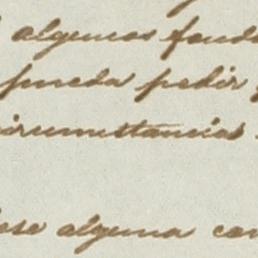 algunos fond
pueda pedir
circumstancias
ese alguna con